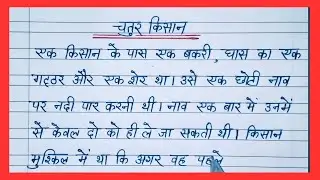 चतुर किसान
एक किसान के पास एक बकरी, घास का एक
गट्ठर और एक शेर था। उसे एक छोटी नाव
पर नदी पार करनी थी। नाव एक बार में उनमें
से केवल दो को ही ले जा सकती थी। किसान
मुश्किल में था कि अगर वह पहले